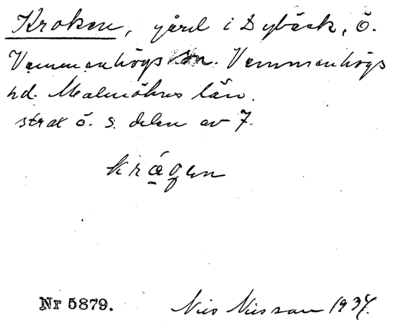 Kroken, gård i Dybäck, Ö.
Vemmenhögs sn. Vemmenhögs
hd. Malmöhus län.
strax ö. s. delen av 7.
krågen
Nr 5879. Nils Nilsson 1934.